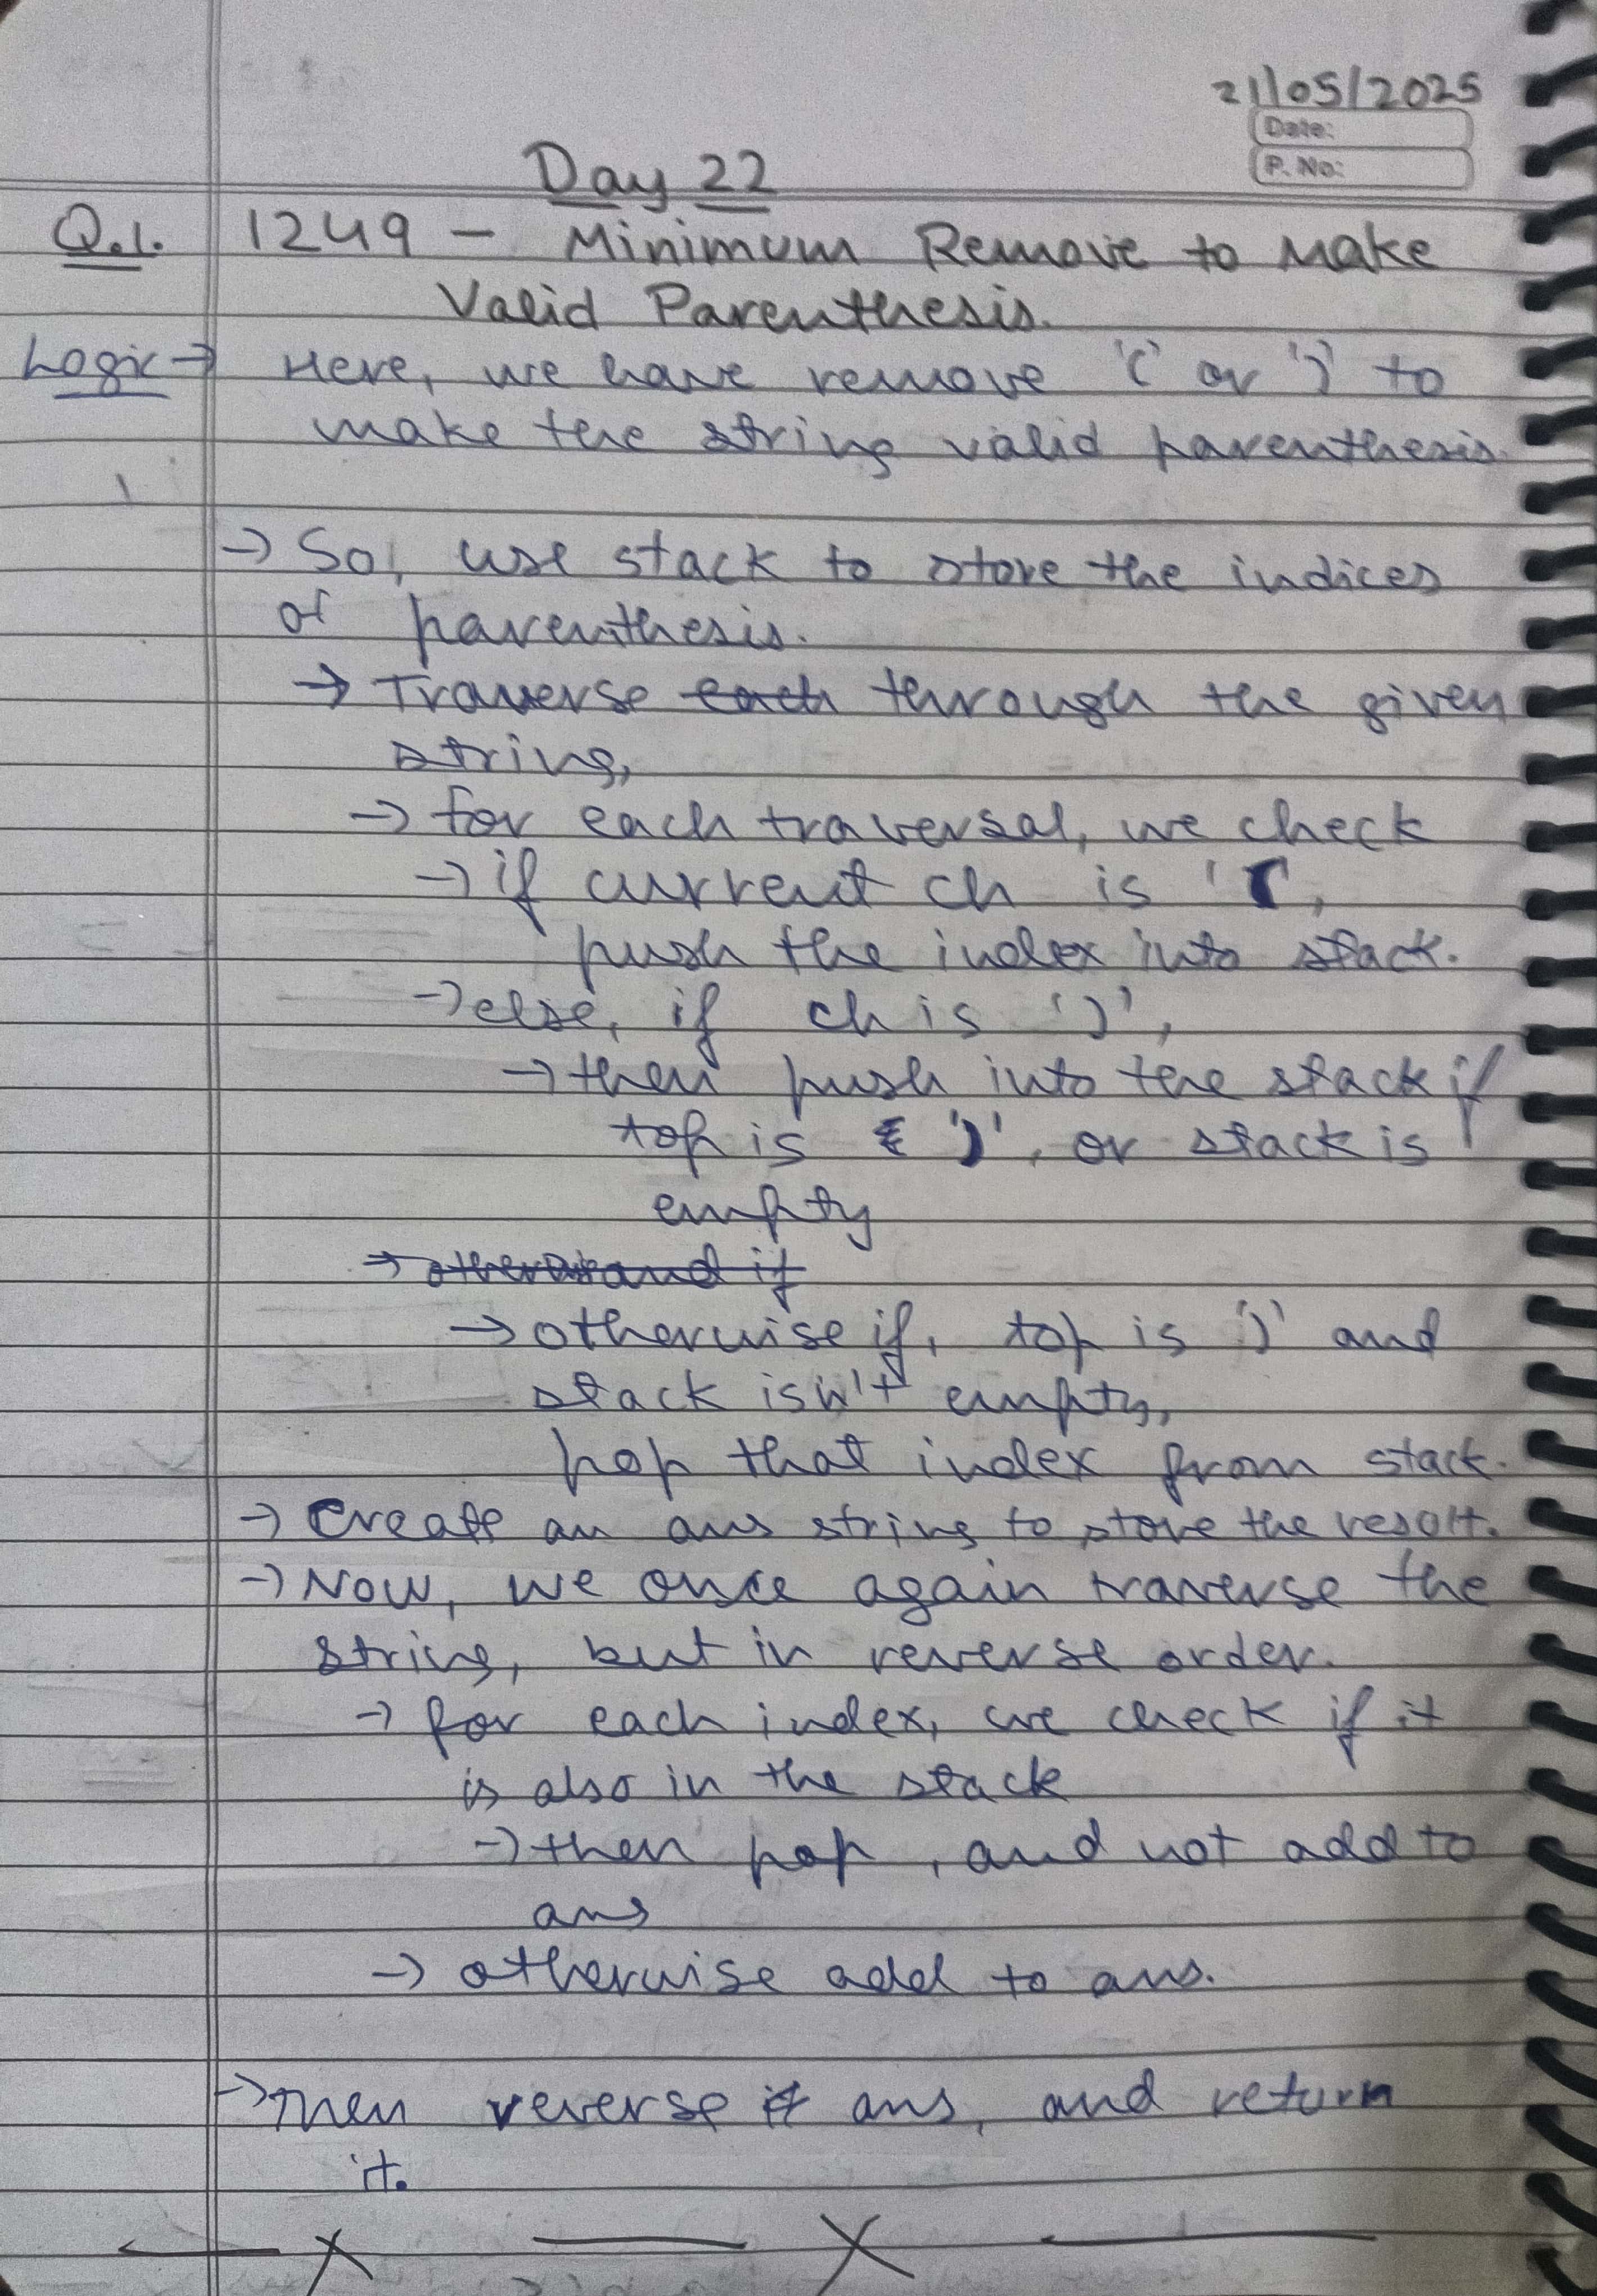 21/05/2025
Date:
P. No:
Day 22
Q.1. 1249 - Minimum Remove to Make
Valid Parenthesis.
Logic → Here, we have remove '(' or ')' to
make the string valid parenthesis.
→ So, use stack to store the indices
of parenthesis.
→ Traverse each through the given
string,
→ for each traversal, we check
→ if current ch is '(',
push the index into stack.
→ else, if ch is ')',
→ then push into the stack if
top is ')', or stack is
empty
→ otherwise and if
→ otherwise if, top is ')' and
stack isn't empty,
pop that index from stack.
→ Create an ans string to store the result.
→ Now, we once again traverse the
string, but in reverse order.
→ for each index, we check if it
is also in the stack
→ then pop, and not add to
ans
→ otherwise add to ans.
→ Then reverse it ans, and return
it.